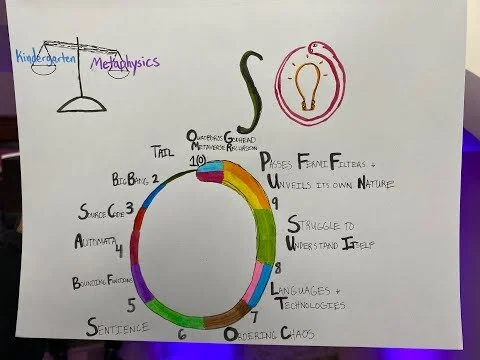 Kindergarten
Metaphysics
OUROBOROS GODHEAD
METAVERSE RECURSION
1(0)
TAIL
PASSES FERMI FILTERS +
UNVEILS ITS OWN NATURE
9
BIG BANG 2
SOURCE CODE 3
STRUGGLE TO
UNDERSTAND ITSELF
AUTOMATA
4
8
BOUNDING FUNCTIONS
5
LANGUAGES +
TECHNOLOGIES
7
SENTIENCE
6
ORDERING CHAOS